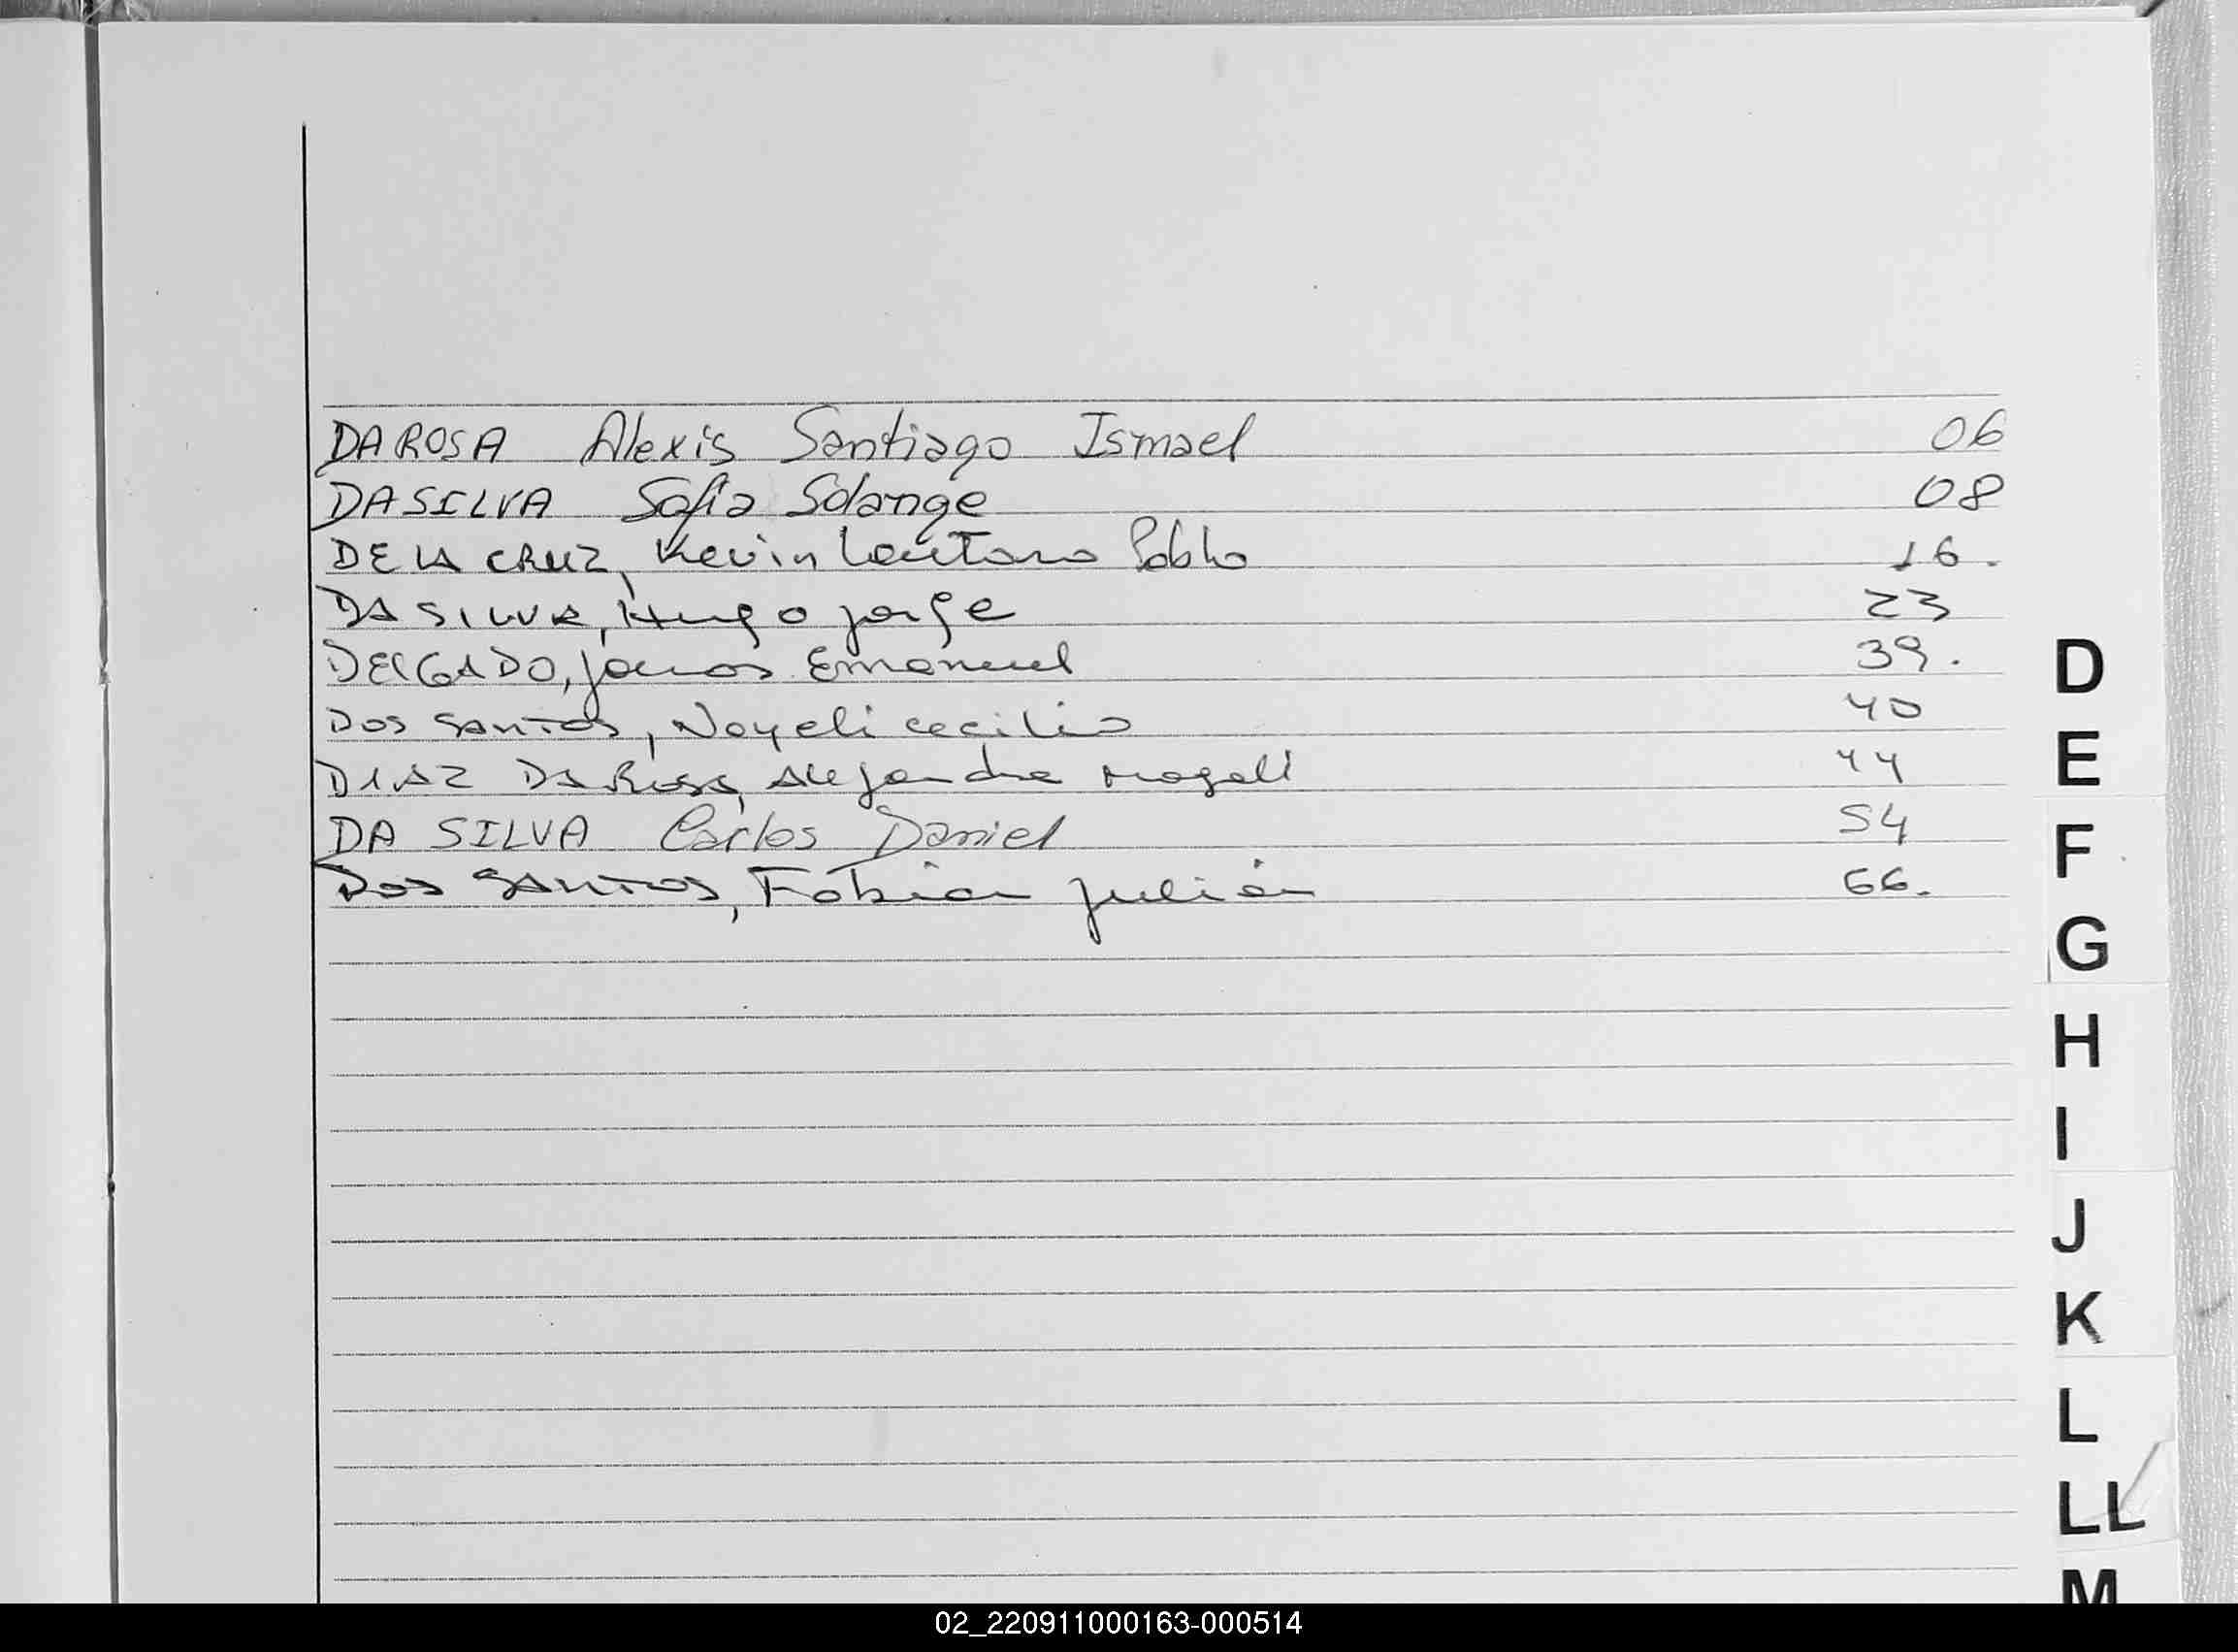 DA ROSA Alexis Santiago Ismael 06
DA SILVA Sofia Solange 08
DE LA CRUZ, Kevin Lautaro Pablo 16.
DA SILVA, Hugo Jorge 23
DELGADO, Emanuel 39.
DOS SANTOS, Nayeli Cecilia 40
DIAZ DA Rosa, Alejandra Magali 44
DA SILVA Carlos Daniel 54
DOS SANTOS, Fabian Julián 66.
D
E
F
G
H
I
J
K
L
LL
M
02_220911000163-000514